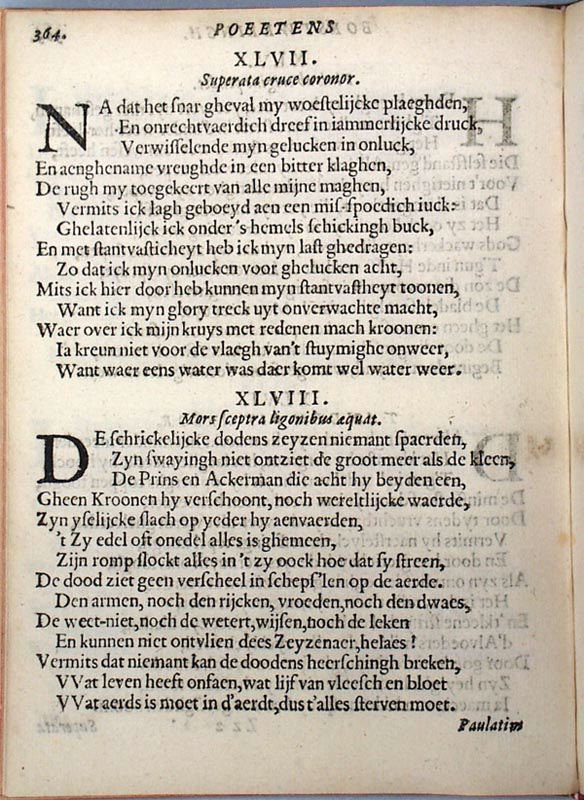 364. POEETENS
XLVII.
Superata cruce coronor.
NA dat het snar gheval my woestelijcke plaeghden,
En onrechtvaerdich dreef in iammerlijcke druck,
Verwisselende myn gelucken in onluck,
En aenghename vreughde in een bitter klaghen,
De rugh my toegekeert van alle mijne maghen,
Vermits ick lagh geboyd aen een mis-spoedich iuck:
Ghelatenlijck ick onder's hemels schickingh buck,
En met stantvasticheyt heb ick myn last ghedragen:
Zo dat ick myn onlucken voor ghelucken acht,
Mits ick hier door heb kunnen myn stantvastheyt toonen,
Want ick myn glory treck uyt onverwachte macht,
Waer over ick mijn kruys met redenen mach kroonen:
Ia kreun niet voor de vlaegh van't stuymighe onweer,
Want waer eens water was daer komt wel water weer.
XLVIII.
Mors sceptra ligonibus æquat.
DE schrickelijcke dodens zeyzen niemant spaerden,
Zyn swayingh niet ontziet de groot meer als de kleen,
De Prins en Ackerman die acht hy beyden een,
Gheen Kroonen hy verschoont, noch wereltlijcke waerde,
Zyn yselijcke slach op yeder hy aenvaerden,
't Zy edel oft onedel alles is ghemeen,
Zijn romp slockt alles in 't zy oock hoe dat sy streen,
De dood ziet geen verscheel in scheps'len op de aerde.
Den armen, noch den rijcken, vroeden, noch den dwaes,
De weet-niet, noch de wetert, wijsen, noch de leken
En kunnen niet ontvlien dees Zeyzenaer, helaes!
Vermits dat niemant kan de doodens heerschingh breken,
VVat leven heeft onfaen, wat lijf van vleesch en bloet
VVat aerds is moet in d'aerdt, dus t'alles sterven moet.
Paulatim